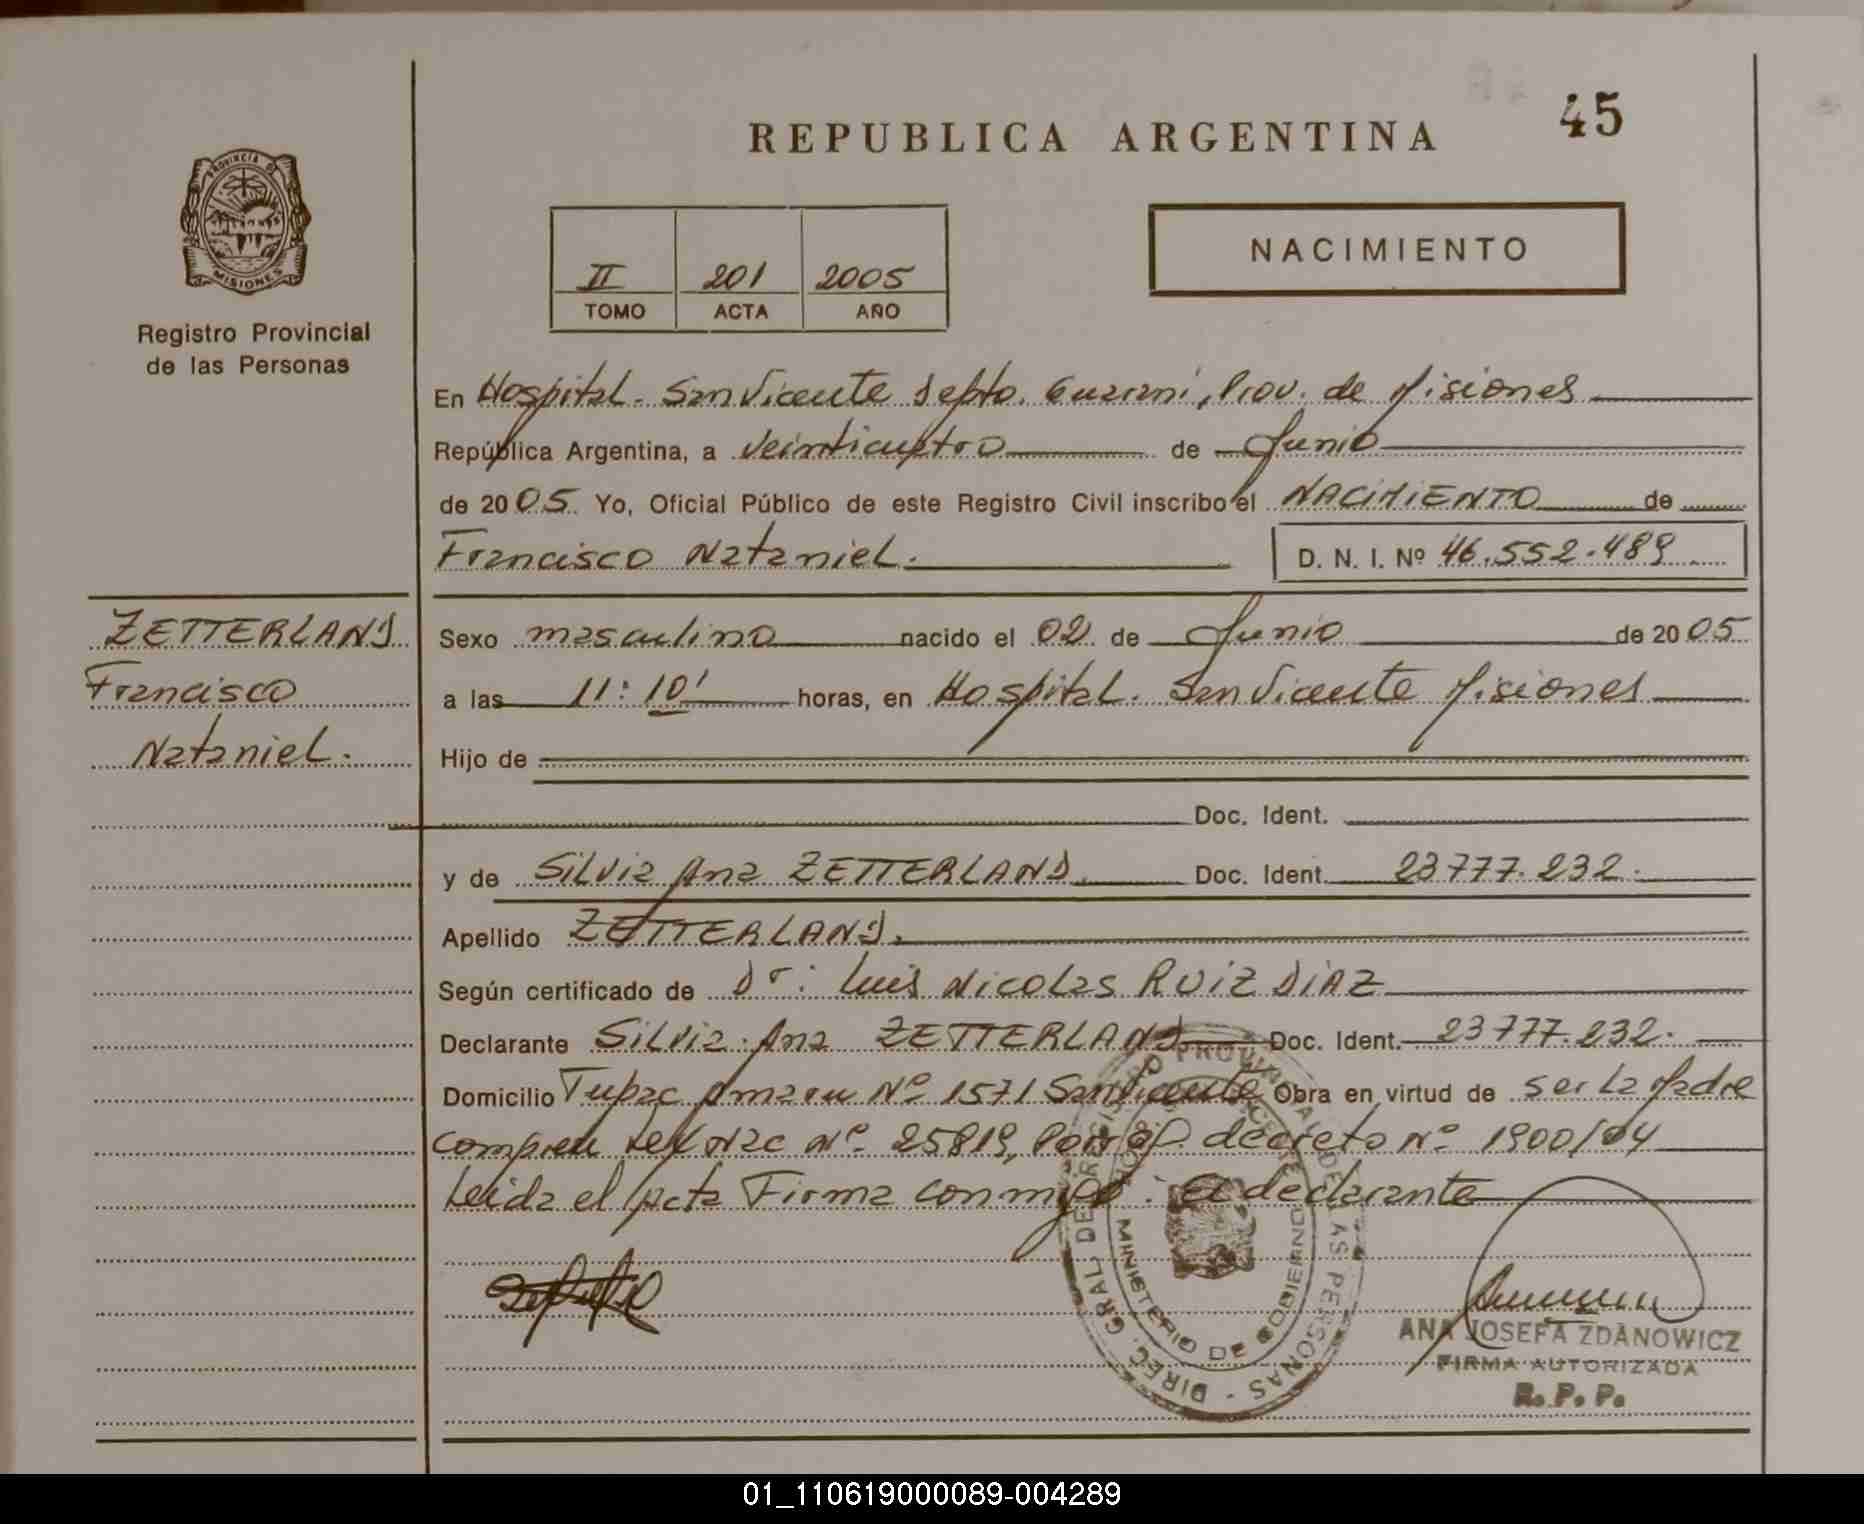 45
REPUBLICA ARGENTINA
PROVINCIA DE
MISIONES
Registro Provincial
de las Personas
NACIMIENTO
II 201 2005
TOMO ACTA AÑO
En Hospital. San Vicente Depto. Guaraní, Prov. de Misiones
República Argentina, a veinticuatro de Junio
de 2005 Yo, Oficial Público de este Registro Civil inscribo el NACIMIENTO de
Francisco Nataniel. D. N. I. Nº 46.552.489
ZETTERLAND
Francisco
Nataniel.
Sexo masculino nacido el 02 de Junio de 2005
a las 11:10' horas, en Hospital. San Vicente Misiones
Hijo de
Doc. Ident.
y de Silvia Ana ZETTERLAND Doc. Ident. 23.777.232.
Apellido ZETTERLAND.
Según certificado de Dr: Luis Nicolas RUIZ DIAZ
Declarante Silvia Ana ZETTERLAND Doc. Ident. 23.777.232.
Domicilio Tupac Amaru Nº 1571 San Vicente Obra en virtud de ser la Madre
Nac Nº 25819, decreto Nº 1900/04
Leida el Acta Firma conmigo: el declarante
DIREC. GRAL. DE REGISTRO PROVINCIAL DE LAS PERSONAS
MINISTERIO DE GOBIERNO
ANA JOSEFA ZDANOWICZ
FIRMA AUTORIZADA
R. P. P.
01_110619000089-004289